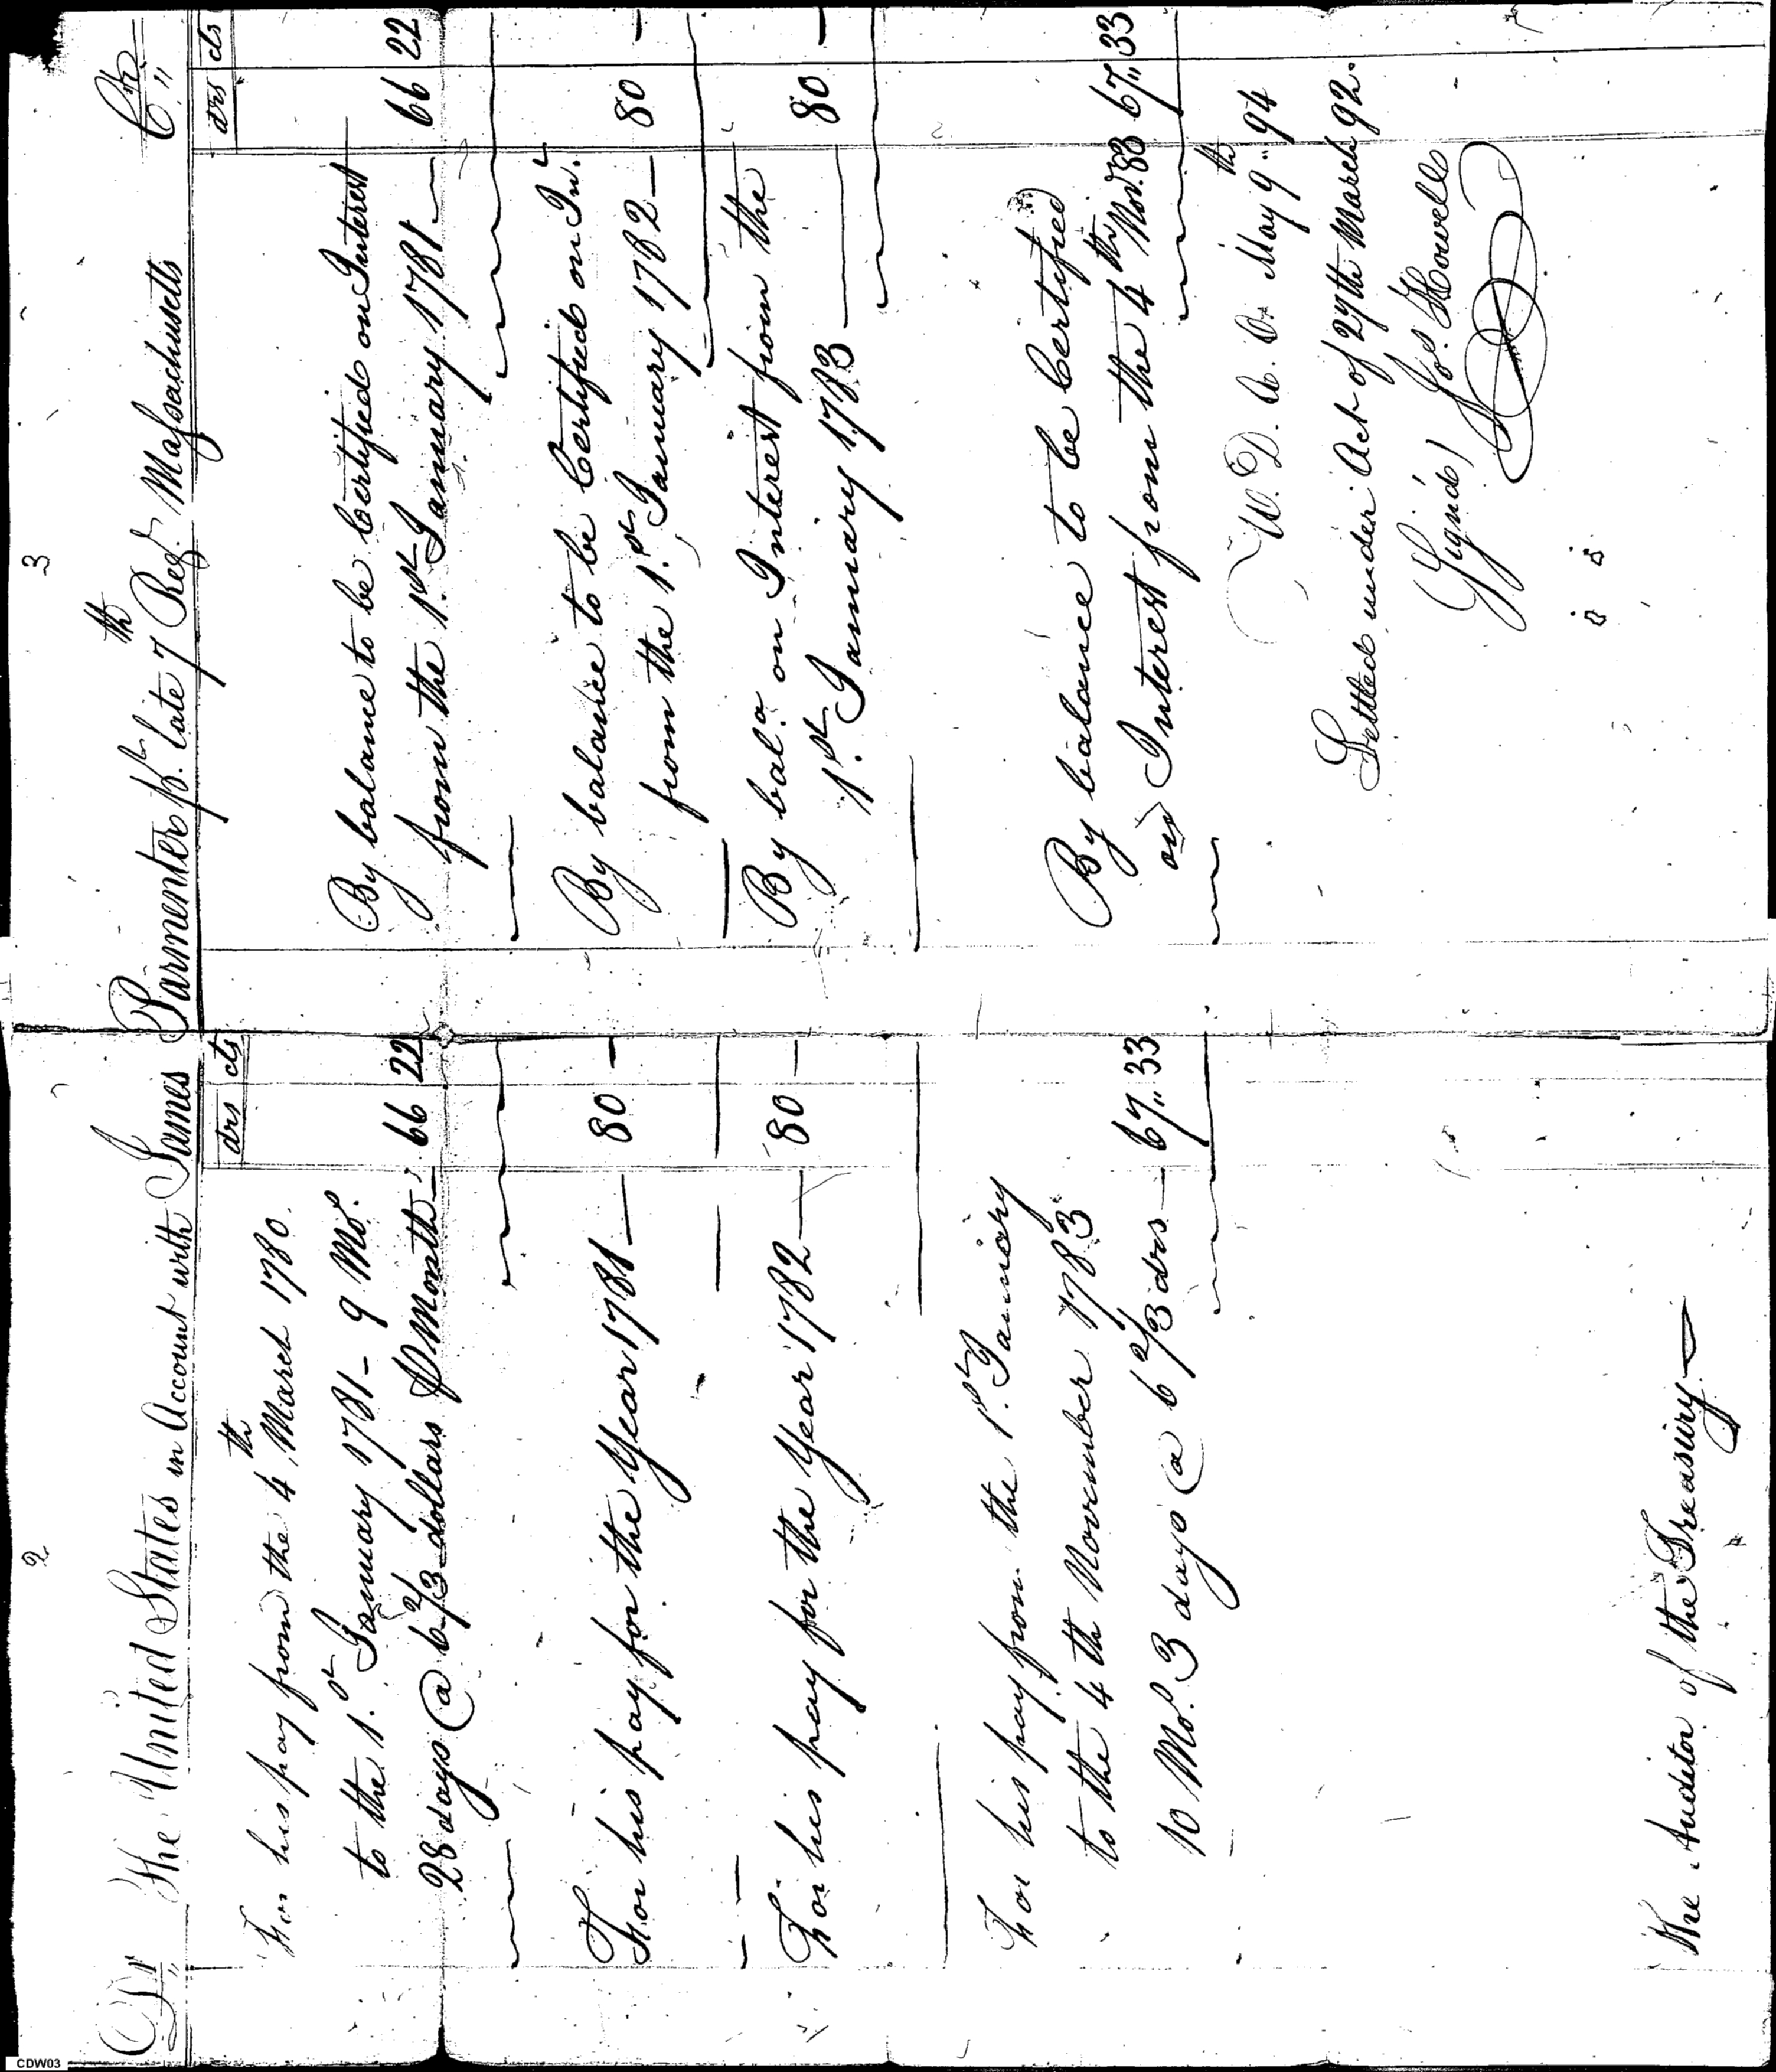 2
Dr The United States in Account with James
drs cts
For his pay from the 4th March 1780.
to the 1.st January 1781 - 9 Mos.
28 days @ 6 2/3 dollars P Month - 66 22
For his pay for the Year 1781 — 80 —
For his pay for the Year 1782 — 80 —
For his pay from the 1st January
to the 4th November 1783
10 Mos. 3 days @ 6 2/3 drs — 67,, 33
The Auditor of the Treasury —
3
Parmenter pt. late 7th Regt. Massachusetts Cr.
drs cts
By balance to be Certified on Interest
from the 1.st January 1781 — 66 22
By balance to be Certified on Int.
from the 1.st January 1782 — 80 —
By bala. on Interest from the
1.st January 1783 — 80 —
By balance to be Certified
on Interest from the 4th Nov. 83 67,, 33
W. D. A. O. May 9th 94
Settled under Act of 27th March 92.
(Signed) Jos. Howell
CDW03